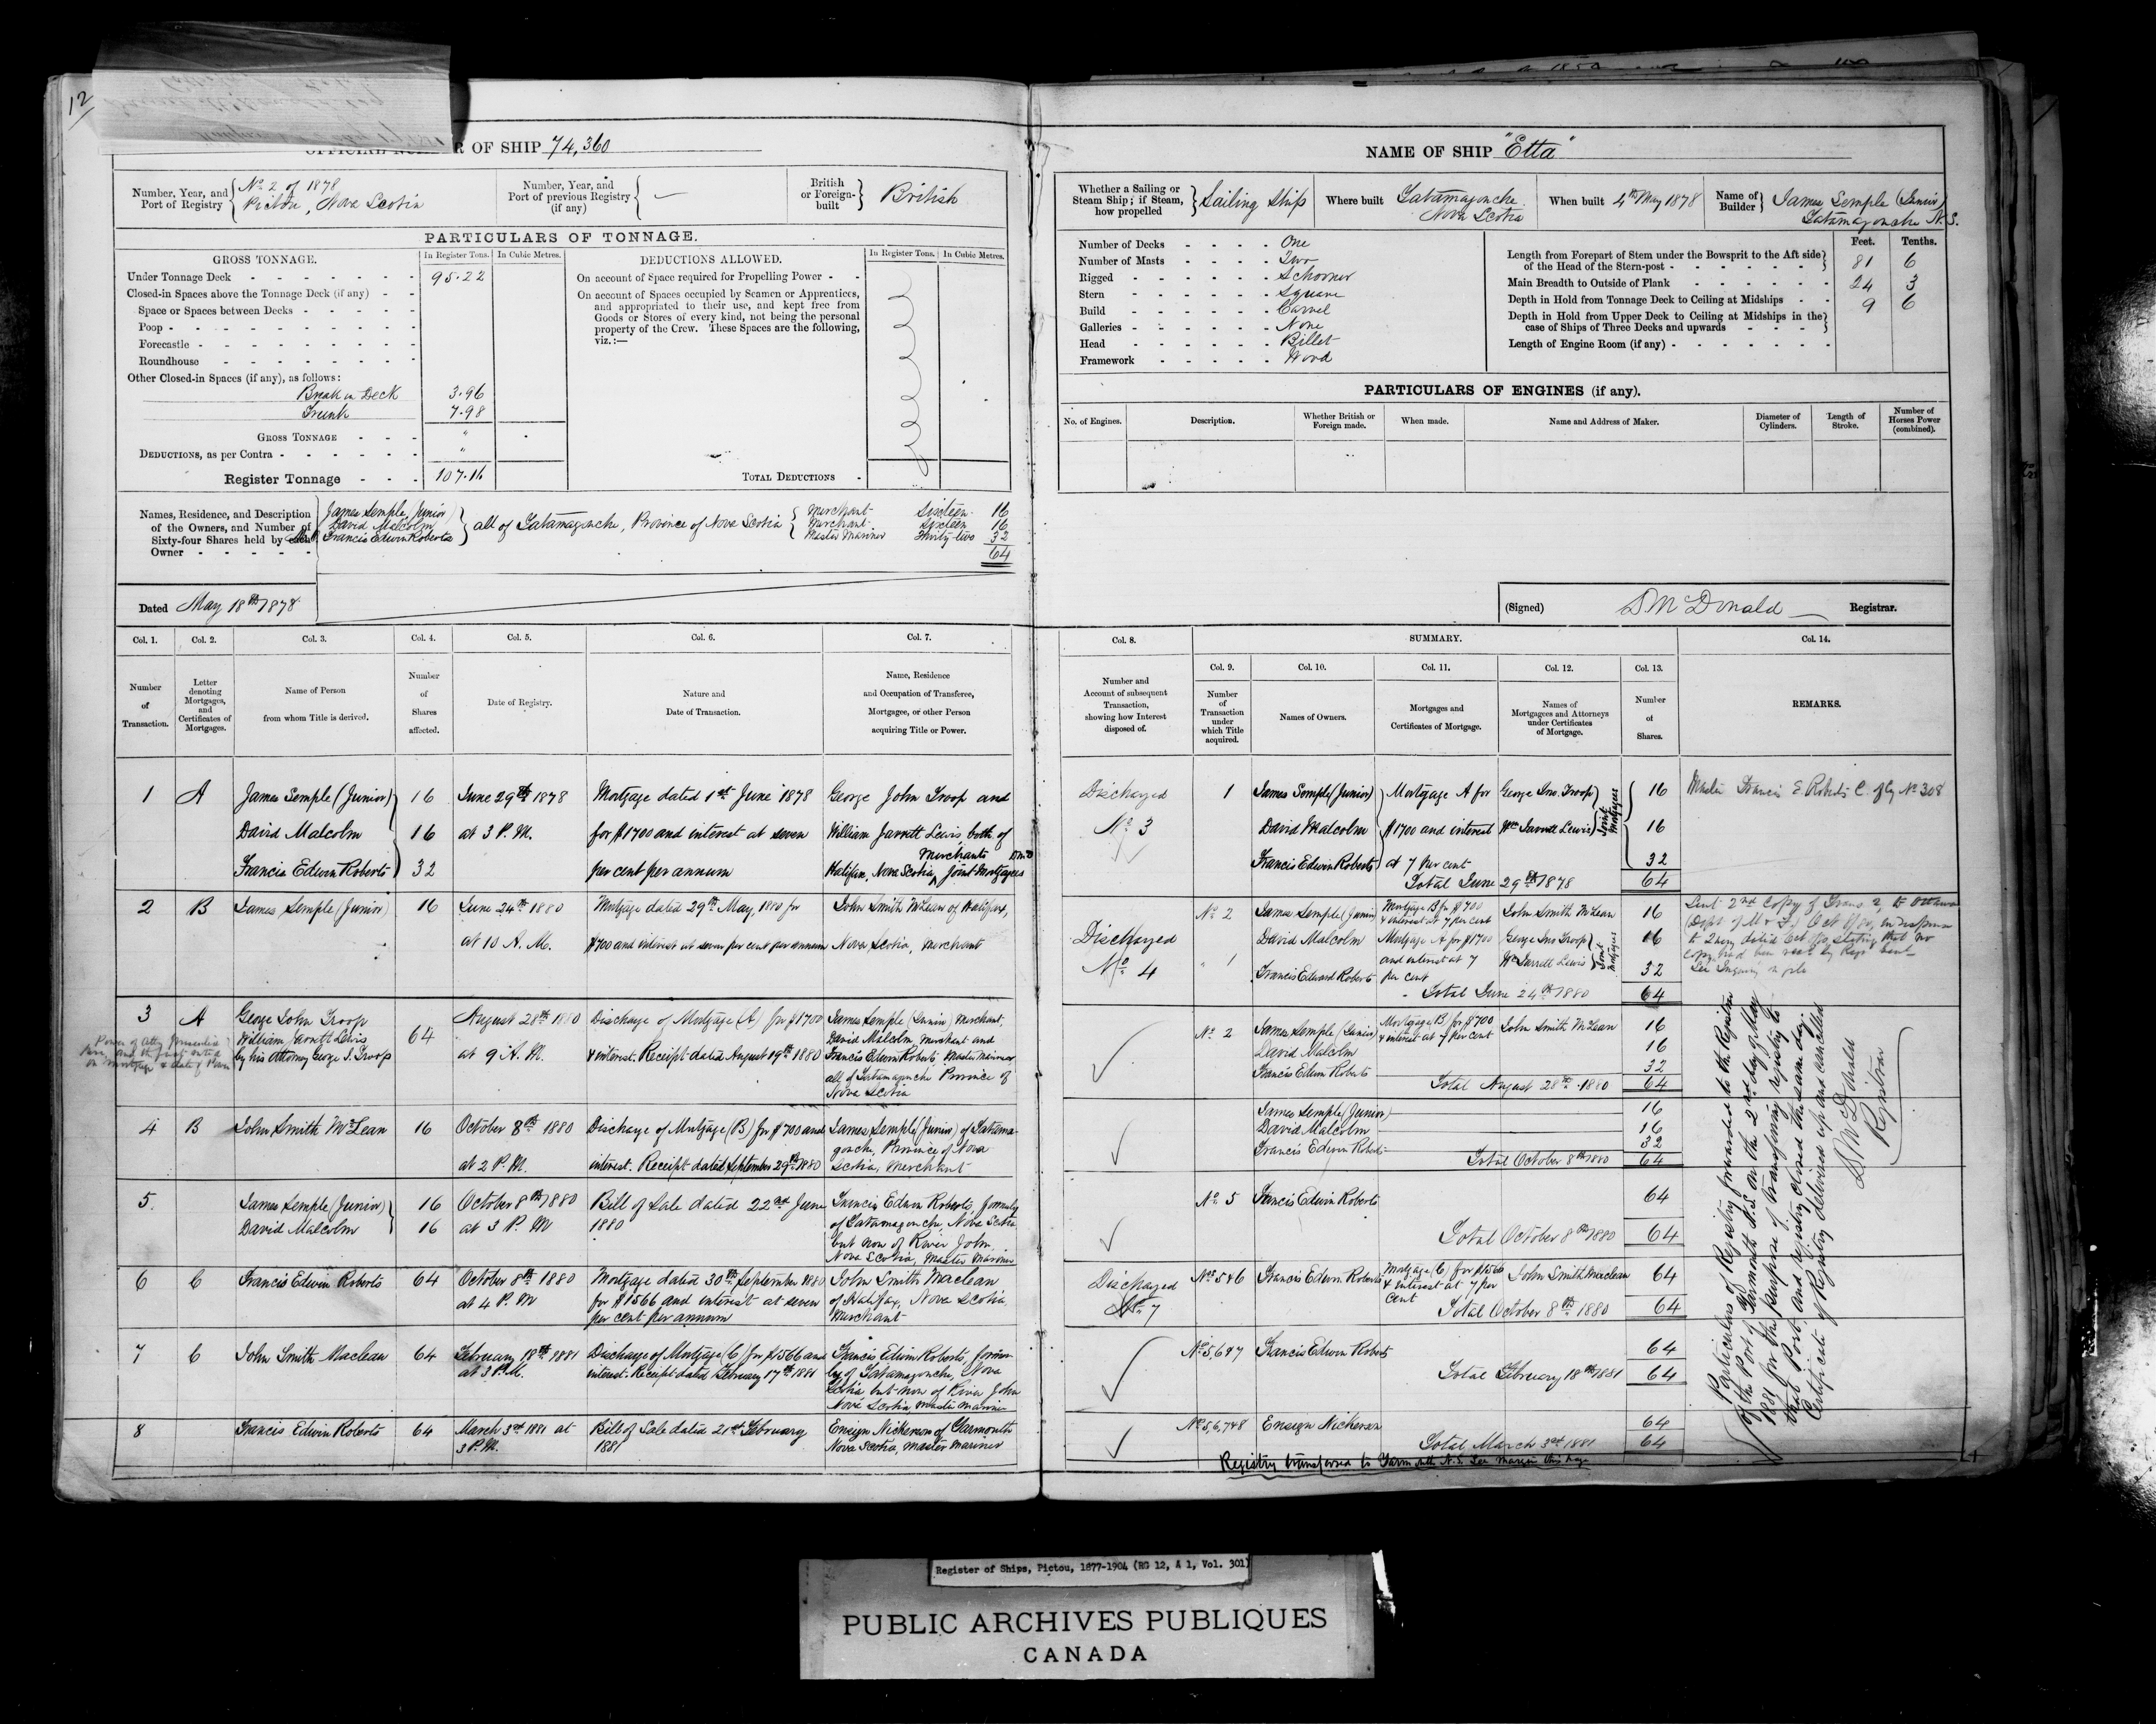 12
OFFICIAL NUMBER OF SHIP 74,360
Number, Year, and Port of Registry
No. 2 of 1878
Pictou, Nova Scotia
Number, Year, and Port of previous Registry (if any)
—
British or Foreign-built
British
PARTICULARS OF TONNAGE.
GROSS TONNAGE.
In Register Tons.
In Cubic Metres.
DEDUCTIONS ALLOWED.
In Register Tons.
In Cubic Metres.
Under Tonnage Deck 95.22
Closed-in Spaces above the Tonnage Deck (if any)
Space or Spaces between Decks
Poop
Forecastle
Roundhouse
Other Closed-in Spaces (if any), as follows:
Break in Deck 3.96
Trunk 7.98
GROSS TONNAGE "
DEDUCTIONS, as per Contra "
Register Tonnage 107.16
On account of Space required for Propelling Power
On account of Spaces occupied by Seamen or Apprentices,
and appropriated to their use, and kept free from
Goods or Stores of every kind, not being the personal
property of the Crew. These Spaces are the following,
viz.:—
TOTAL DEDUCTIONS
Names, Residence, and Description
of the Owners, and Number of
Sixty-four Shares held by each
Owner
James Semple (Junior)
David Malcolm
Francis Edwin Roberts
all of Tatamagouche, Province of Nova Scotia
Merchant Sixteen 16
Merchant Sixteen 16
Master Mariner Thirty-two 32
64
Dated May 18th 1878
Col. 1. Col. 2. Col. 3. Col. 4. Col. 5. Col. 6. Col. 7.
Number of Transaction.
Letter denoting Mortgages, and Certificates of Mortgages.
Name of Person from whom Title is derived.
Number of Shares affected.
Date of Registry.
Nature and Date of Transaction.
Name, Residence and Occupation of Transferee, Mortgagee, or other Person acquiring Title or Power.
1 A James Semple (Junior) 16 June 29th 1878 Mortgage dated 1st June 1878 George John Troop and
David Malcolm 16 at 3 P.M. for $1700 and interest at seven William Jarrett Lewis both of
Francis Edwin Roberts 32 per cent per annum Halifax, Nova Scotia, Merchants Joint Mortgagees
2 B James Semple (Junior) 16 June 24th 1880 Mortgage dated 29th May, 1880 for John Smith McLean of Halifax,
at 10 A.M. $700 and interest at seven per cent per annum Nova Scotia, Merchant
3 A George John Troop August 28th 1880 Discharge of Mortgage (A) for $1700 James Semple (Junior) Merchant,
William Jarrett Lewis 64 David Malcolm, Merchant and
by his Attorney George J. Troop at 9 A.M. & interest. Receipt dated August 19th 1880 Francis Edwin Roberts Master Mariner
all of Tatamagouche Province of
Nova Scotia
4 B John Smith McLean 16 October 8th 1880 Discharge of Mortgage (B) for $700 and James Semple (Junior) of Tatama-
gouche, Province of Nova
at 2 P.M. interest. Receipt dated September 29th 1880 Scotia, Merchant
5. James Semple (Junior) 16 October 8th 1880 Bill of Sale dated 22nd June Francis Edwin Roberts, formerly
David Malcolm 16 at 3 P.M 1880 of Tatamagouche, Nova Scotia
but now of River John
Nova Scotia, Master Mariner
6 C Francis Edwin Roberts 64 October 8th 1880 Mortgage dated 30th September 1880 John Smith Maclean
at 4 P.M for $1566 and interest at seven of Halifax, Nova Scotia
per cent per annum Merchant
7 C John Smith Maclean 64 February 18th 1881 Discharge of Mortgage (C) for $1566 and Francis Edwin Roberts, former-
at 3 P.M. interest. Receipt dated February 17th 1881 ly of Tatamagouche, Nova
Scotia but now of River John
Nova Scotia, Master Mariner
8 Francis Edwin Roberts 64 March 3rd 1881 at Bill of Sale dated 21st February Ensign Nickerson of Yarmouth
3 P.M. 1881 Nova Scotia, Master Mariner
NAME OF SHIP "Etta"
Whether a Sailing or Steam Ship; if Steam, how propelled
Sailing Ship
Where built
Tatamagouche
Nova Scotia
When built 4th May 1878
Name of Builder
James Semple (Junior)
Tatamagouche N.S.
Number of Decks One
Number of Masts Two
Rigged Schooner
Stern Square
Build Carvel
Galleries None
Head Billet
Framework Wood
Feet. Tenths.
Length from Forepart of Stem under the Bowsprit to the Aft side
of the Head of the Stern-post 81 6
Main Breadth to Outside of Plank 24 3
Depth in Hold from Tonnage Deck to Ceiling at Midships 9 6
Depth in Hold from Upper Deck to Ceiling at Midships in the
case of Ships of Three Decks and upwards
Length of Engine Room (if any)
PARTICULARS OF ENGINES (if any).
No. of Engines.
Description.
Whether British or Foreign made.
When made.
Name and Address of Maker.
Diameter of Cylinders.
Length of Stroke.
Number of Horses Power (combined).
(Signed) D McDonald Registrar.
Col. 8. SUMMARY. Col. 14.
Col. 9. Col. 10. Col. 11. Col. 12. Col. 13.
Number and Account of subsequent Transaction, showing how Interest disposed of.
Number of Transaction under which Title acquired.
Names of Owners.
Mortgages and Certificates of Mortgage.
Names of Mortgagees and Attorneys under Certificates of Mortgage.
Number of Shares.
REMARKS.
Discharged 1 James Semple (Junior) Mortgage A for George Jno. Troop 16 Master Francis E Roberts C. of Cy No 308
No. 3 David Malcolm $1700 and interest Wm Jarrett Lewis Joint Mortgagees 16
Francis Edwin Roberts at 7 per cent 32
Total June 29th 1878 64
No. 2 James Semple (Junior) Mortgage B for $700 & interest at 7 per cent John Smith McLean 16
Discharged David Malcolm Mortgage A for $1700 George Jno Troop 16
No. 4 " 1 Francis Edward Roberts and interest at 7 per cent Wm Jarrett Lewis Joint Mortgagees 32
Total June 24th 1880 64
Sent 2nd Copy of Trans. 2, to Ottawa
No. 2 James Semple (Junior) Mortgage (B) for $700 & interest at 7 per cent John Smith McLean 16
David Malcolm 16
Francis Edwin Roberts 32
Total August 28th 1880 64
James Semple (Junior) 16
David Malcolm 16
Francis Edwin Roberts 32
Total October 8th 1880 64
No. 5 Francis Edwin Roberts 64
Total October 8th 1880 64
Discharged Nos. 5 & 6 Francis Edwin Roberts Mortgage (C) for $1566 & interest at 7 per cent John Smith Maclean 64
No. 7 Total October 8th 1880 64
Nos. 5, 6 & 7 Francis Edwin Roberts 64
Total February 18th 1881 64
Nos. 5, 6, 7 & 8 Ensign Nickerson 64
Total March 3rd 1881 64
Registry transferred to Yarmouth N.S. See margin this page
Particulars of Registry forwarded to the Registrar
of the Port of Yarmouth N.S. on the 2nd day of May
1881 for the purpose of transferring registry to
that Port, and registry closed the same day.
Certificate of Registry delivered up and cancelled
D McDonald
Registrar
Register of Ships, Pictou, 1877-1904 (RG 12, A 1, Vol. 301)
PUBLIC ARCHIVES PUBLIQUES
CANADA